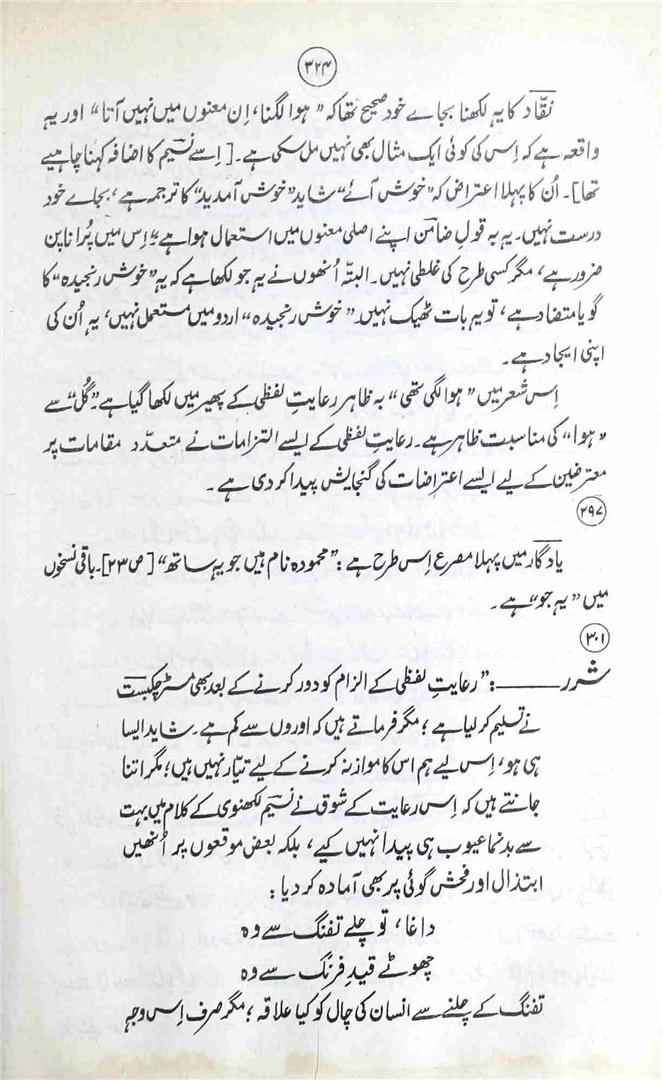 ۳۲۴
نقّاد کا یہ لکھنا بجاے خود صحیح تھا کہ "ہوا لگنا، اِن معنوں میں نہیں آتا" اور یہ
واقعہ ہے کہ اِس کی کوئی ایک مثال بھی نہیں مل سکی ہے۔ [اِسے نسیم کا اضافہ کہنا چاہیے
تھا]۔ اُن کا پہلا اعتراض کہ "خوش آئے" شاید "خوش آمدید" کا ترجمہ ہے، بجاے خود
درست نہیں۔ یہ بہ قولِ ضامن اپنے اصلی معنوں میں استعمال ہوا ہے"؛ اِس میں پُرانا پن
ضرور ہے، مگر کسی طرح کی غلطی نہیں۔ البتّہ اُنھوں نے یہ جو لکھا ہے کہ یہ "خوش رنجیدہ" کا
گویا متضاد ہے، تو یہ بات ٹھیک نہیں۔ "خوش رنجیدہ" اردو میں مستعمل نہیں، یہ اُن کی
اپنی ایجاد ہے۔
اِس شعر میں "ہوا لگی تھی" بہ ظاہر رعایتِ لفظی کے پھیر میں لکھا گیا ہے۔ "گُل" سے
"ہوا" کی مناسبت ظاہر ہے۔ رعایتِ لفظی کے ایسے التزامات نے متعدّد مقامات پر
معترضین کے لیے ایسے اعتراضات کی گنجایش پیدا کر دی ہے۔
۲۹۷
یادگار میں پہلا مصرع اِس طرح ہے: "محمودہ نام ہیں جو یہ ساتھ" [ص ۲۳]۔ باقی نسخوں
میں "یہ جو" ہے۔
۳۰۱
شرر ــــــ: "رعایتِ لفظی کے الزام کو دور کرنے کے بعد بھی مسٹر چکبست
نے تسلیم کر لیا ہے؛ مگر فرماتے ہیں کہ اوروں سے کم ہے۔ شاید ایسا
ہی ہو، اِس لیے ہم اس کا موازنہ کرنے کے لیے تیّار نہیں ہیں؛ مگر اتنا
جانتے ہیں کہ اِس رعایت کے شوق نے نسیم لکھنوی کے کلام میں بہت
سے بدنما عیوب ہی پیدا نہیں کیے، بلکہ بعض موقعوں پر اُنھیں
ابتذال اور فحش گوئی پر بھی آمادہ کر دیا:
داغا، تو چلے تفنگ سے وہ
چھوٹے قیدِ فرنگ سے وہ
تفنگ کے چلنے سے انسان کی چال کو کیا علاقہ؛ مگر صرف اِس وجہ